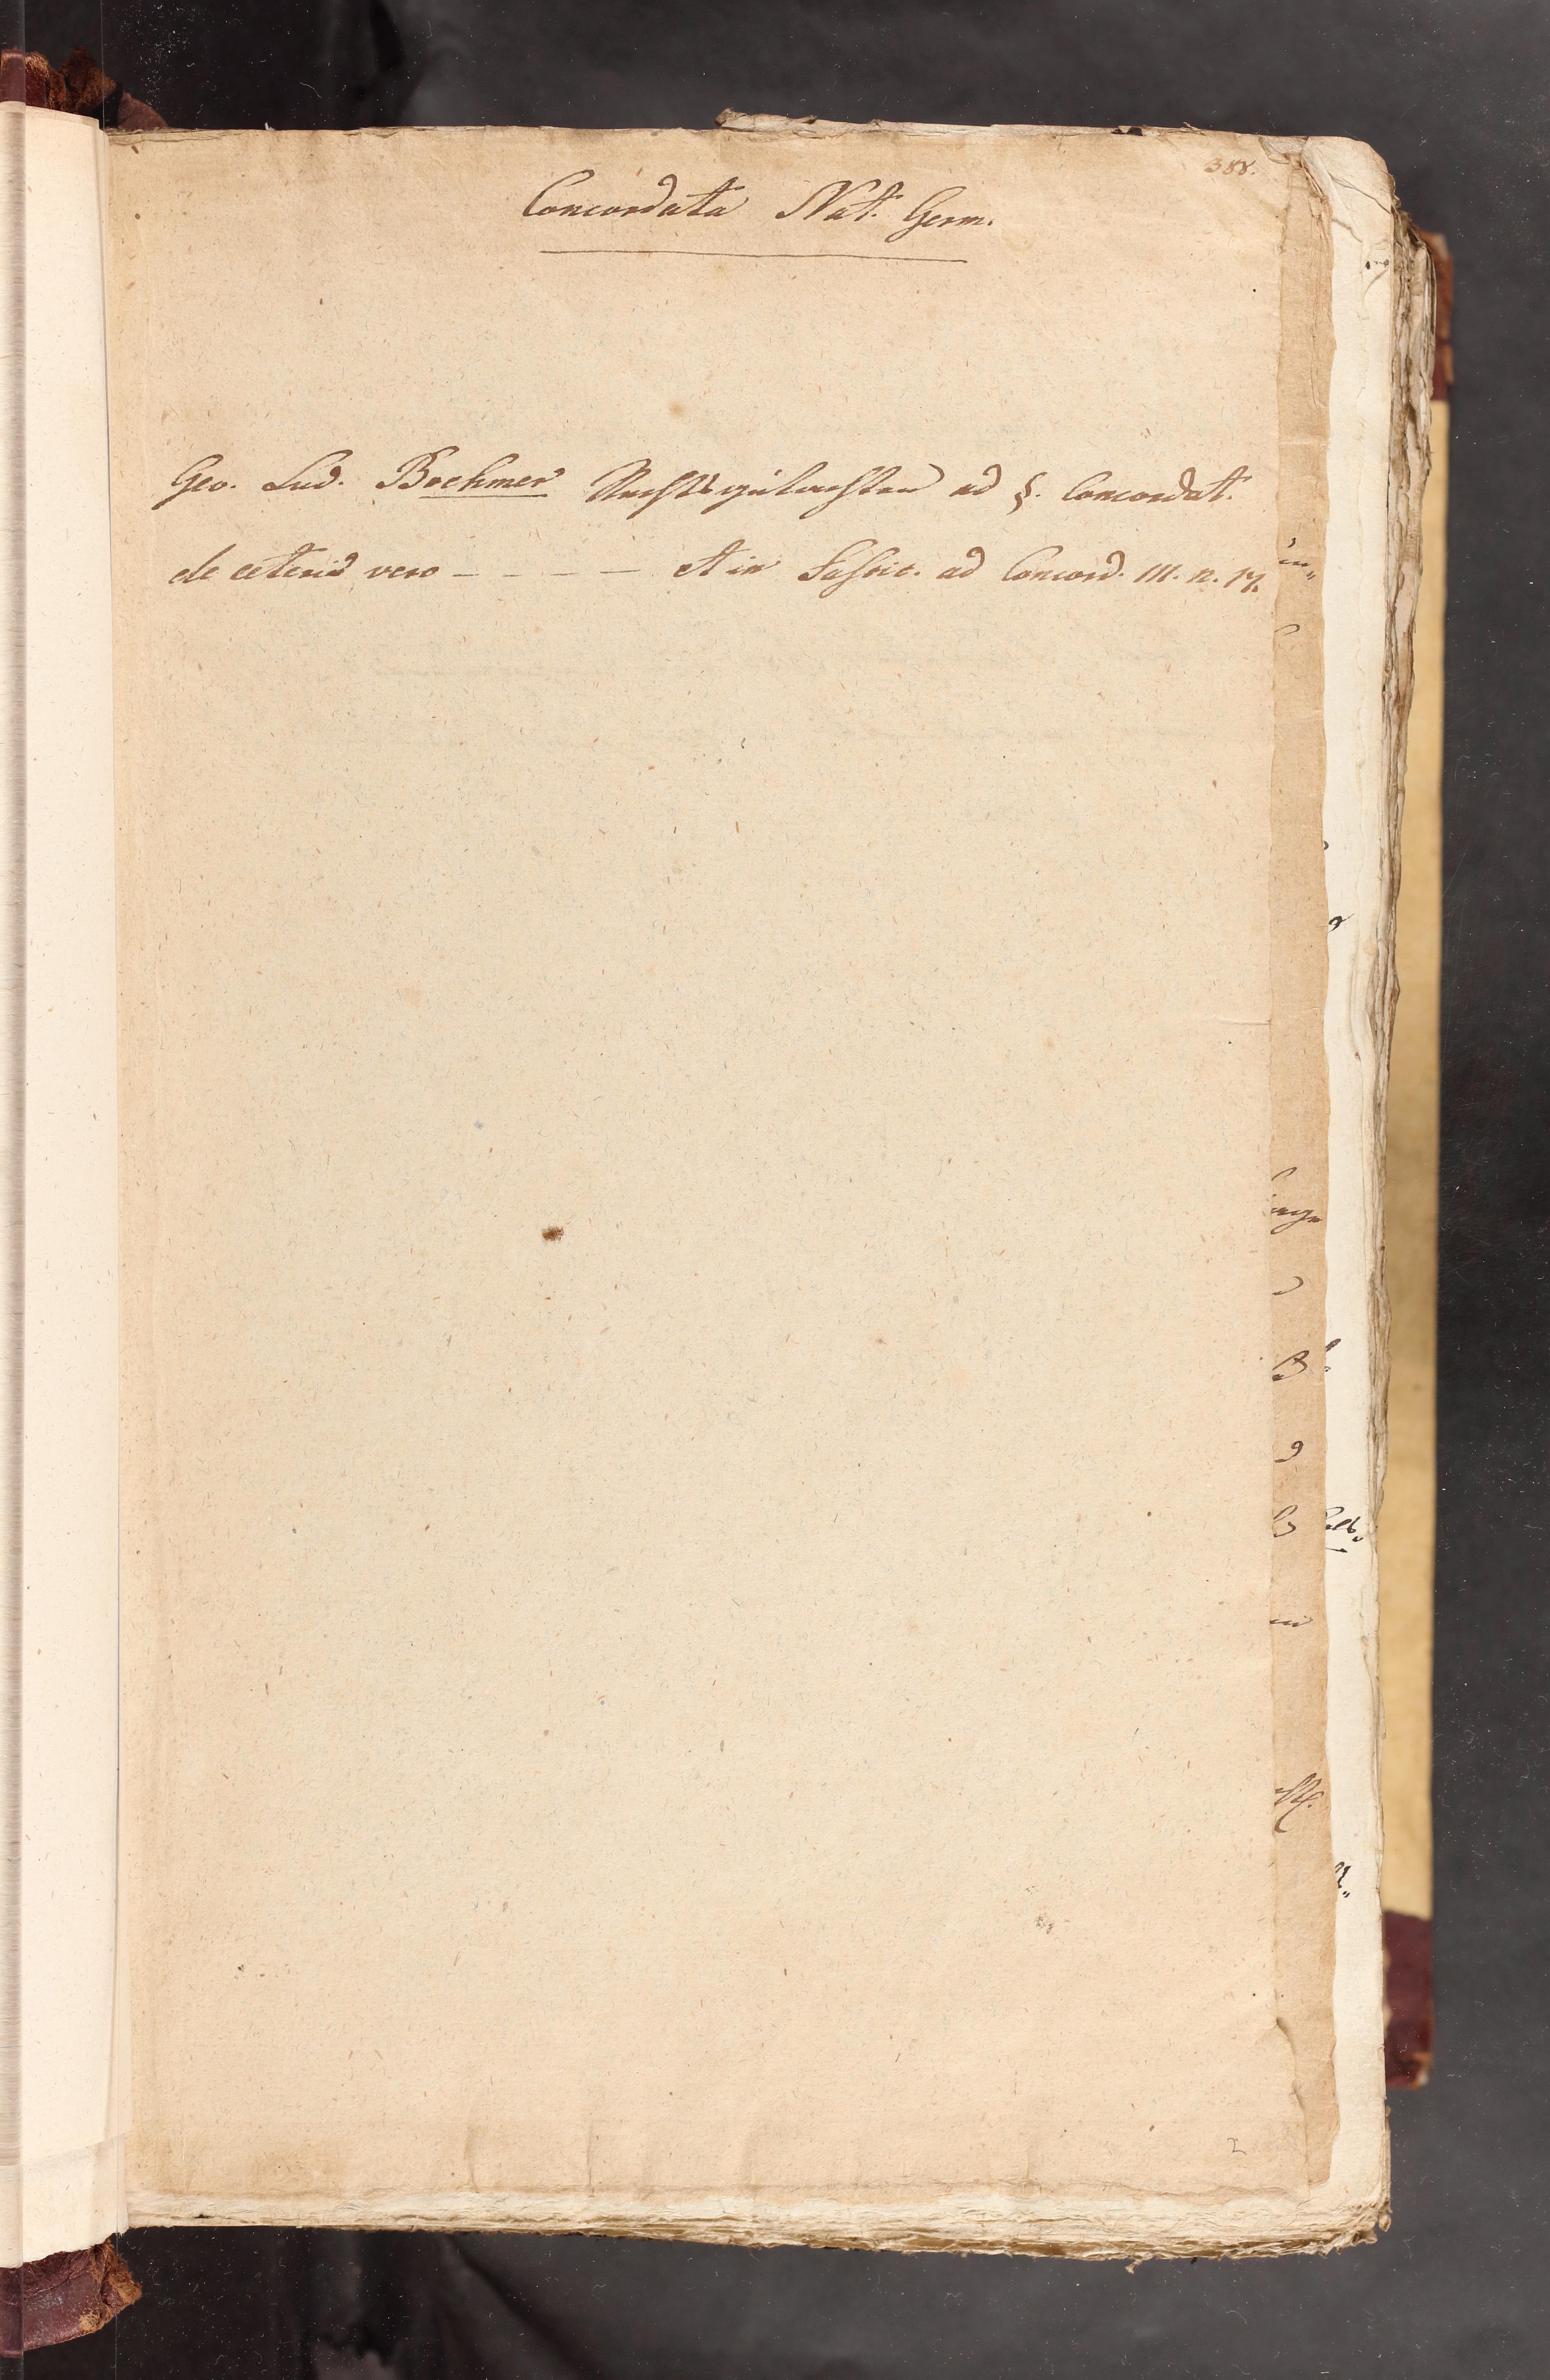 388.
Concordata Nat. Germ.
Geo. Lud. Boehmer Rechtsgutachten ad §. Concordat.
de ceteris vero - - - - et in Fascic. ad Concord. III. n. 17.
2